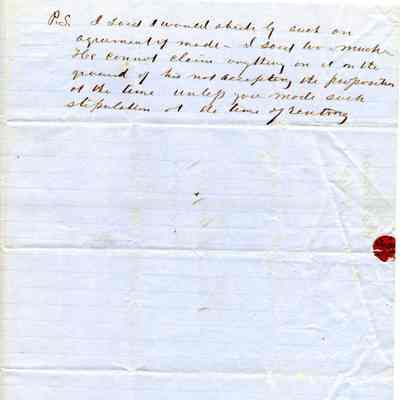 P.S. I said I would abide by such an
agreement if made - I said too much -
He cannot claim anything on it on the
ground of his not accepting the proposition
at the time unless you made such
stipulation at the time of renting